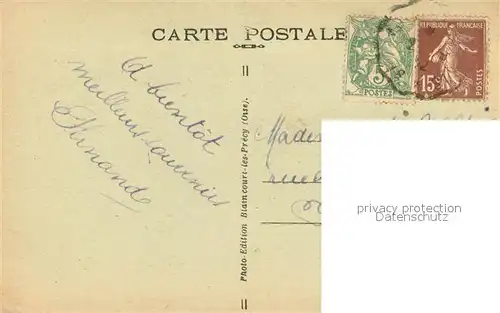 CARTE POSTALE
REPUBLIQUE FRANÇAISE
5
POSTES
15
A bientôt
meilleurs souvenirs
Photo-Edition Blaincourt-les-Précy (Oise).
privacy protection
Datenschutz